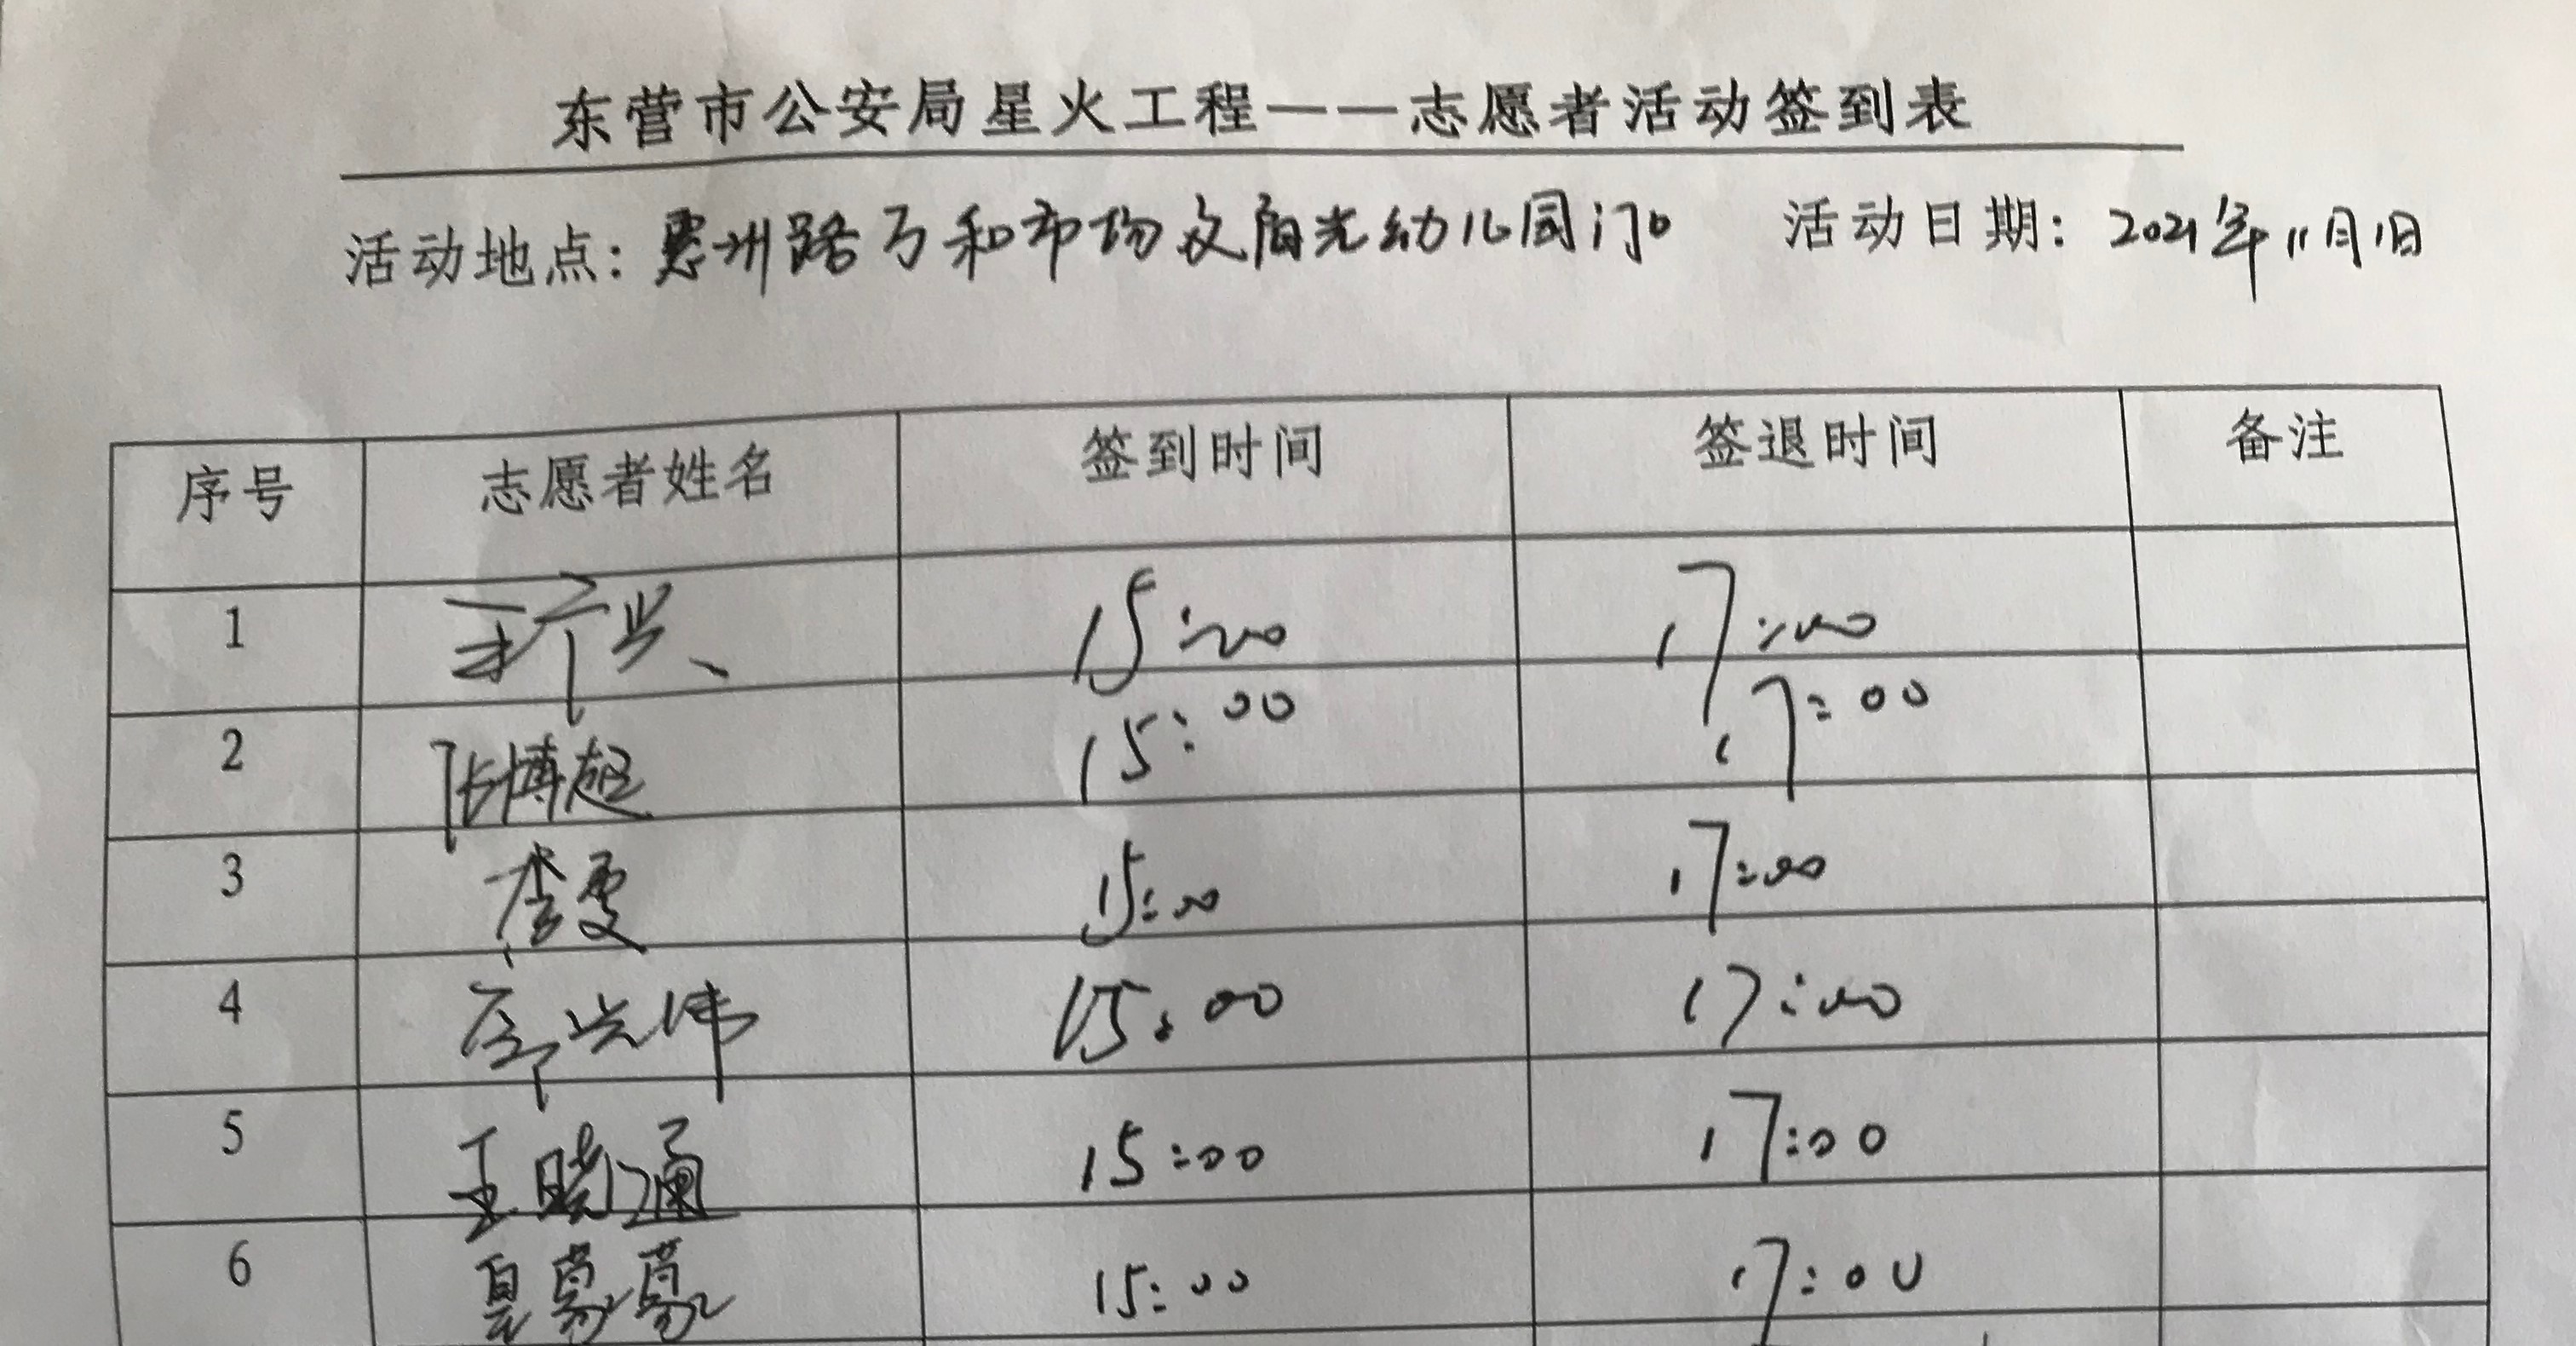 东营市公安局星火工程——志愿者活动签到表
活动地点：惠州路万和市场文启光幼儿园门口 活动日期：2021年11月1日
序号 志愿者姓名 签到时间 签退时间 备注
1 15:00 17:00
2 张博超 15:00 17:00
3 李雯 15:00 17:00
4 15:00 17:00
5 王晓涵 15:00 17:00
6 15:00 17:00